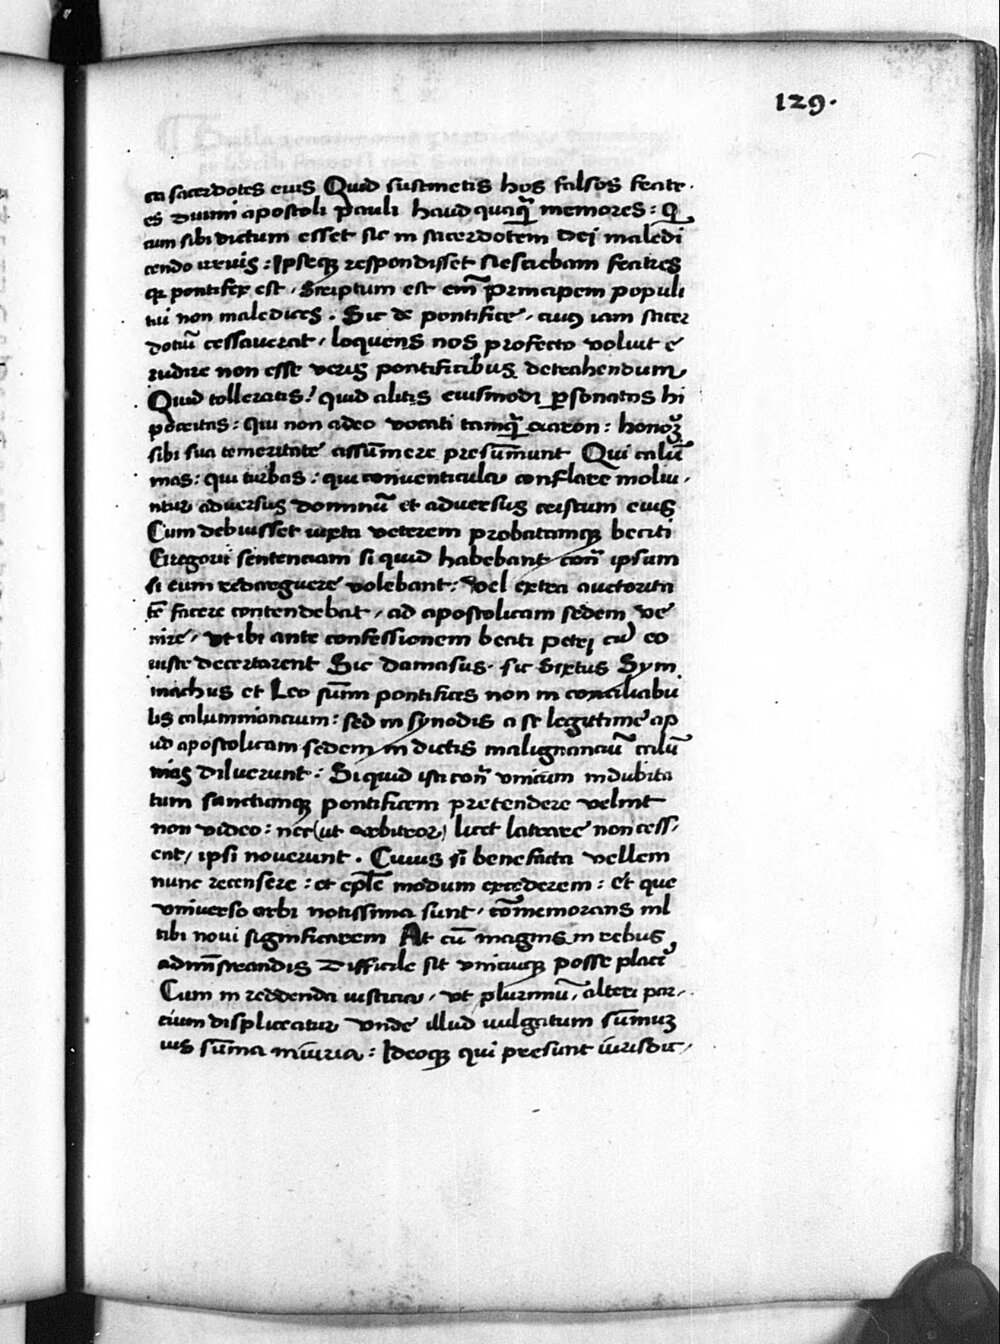 129.
ca sacerdotes eius Quid sustinetis hos falsos fratr
es Diuini apostoli pauli haud quaq̃ memores: Q
cum sibi dictum esset sic in sacerdotem Dei maledi
cendo irruis: Ipseqʒ respondisset Nesciebam fratres
qʒ pontifex est, Scriptum est em̃ Principem populi
tui non maledices. Sic de pontifice, cuiꝰ iam sacer
dotiũ cessauerat, loquens nos profecto voluit e
rudire non esse veris pontificibus detrahendum
Quid tolleratis! quid alitis eiusmodi psonatos hi
pocritas: Qui non adeo vocati tamq̃ aaron: honoꝝ
sibi sua temeritate assũmere presũmunt Qui calũ
nias: qui turbas: qui conuenticula conflare moliu
ntur aduersus dominũ et aduersus cristum eius
Cum debuisset iuxta veterem probatamqʒ beati
Gregorii sentenciam si quid habebant con̄ ipsum
si eum redarguere volebant: Vel extra auctorita
tẽ facere contendebat, ad apostolicam sedem ve
nire, Vt ibi ante confessionem beati petri cũ eo
iuste decertarent Sic Damasus. sic Sixtus Sym
machus et Leo sũmi pontifices non in conciliabu
lis calummiancium: sed in synodis a se legitime ap
ud apostolicam sedem in dictis malignanciũ calũ
nias diluerunt: Si quid isti con̄ vnicum indubita
tum sanctumqʒ pontificem pretendere velint
non video: nec (ut arbitror) licet latrare non cess,
ent, ipsi nouerunt. Cuius si benefacta vellem
nunc recensere: et ep̃le modum excederem: et que
vniuerso orbi notissima sunt, cõmemorans ml
tibi noui significarem At cũ magnis in rebus
admĩstrandis Difficile sit vnicuiqʒ posse placẽ
Cum in reddenda iusticia, vt plurimũ, alteri par
cium displiceatur vnde illud uulgatum sũmuʒ
ius sũma iniuria: Ideoqʒ qui presunt iurisdic